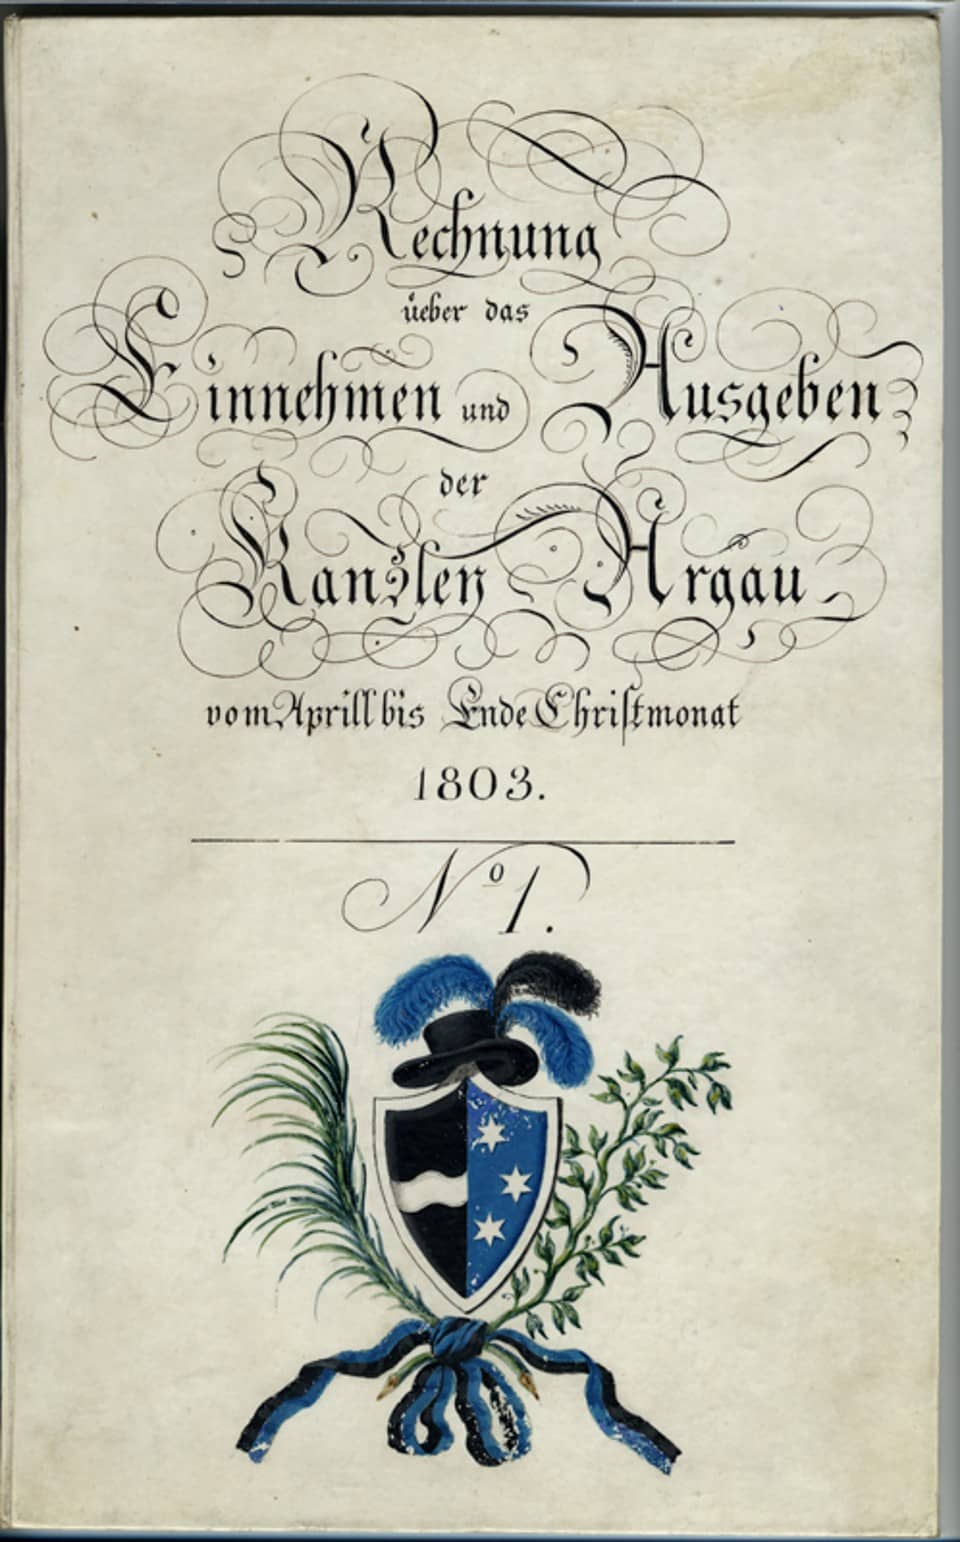 Rechnung
üeber das
Einnehmen und Ausgeben
der
Kanzley Argau
vom Aprill bis Ende Christmonat
1803.
No 1.